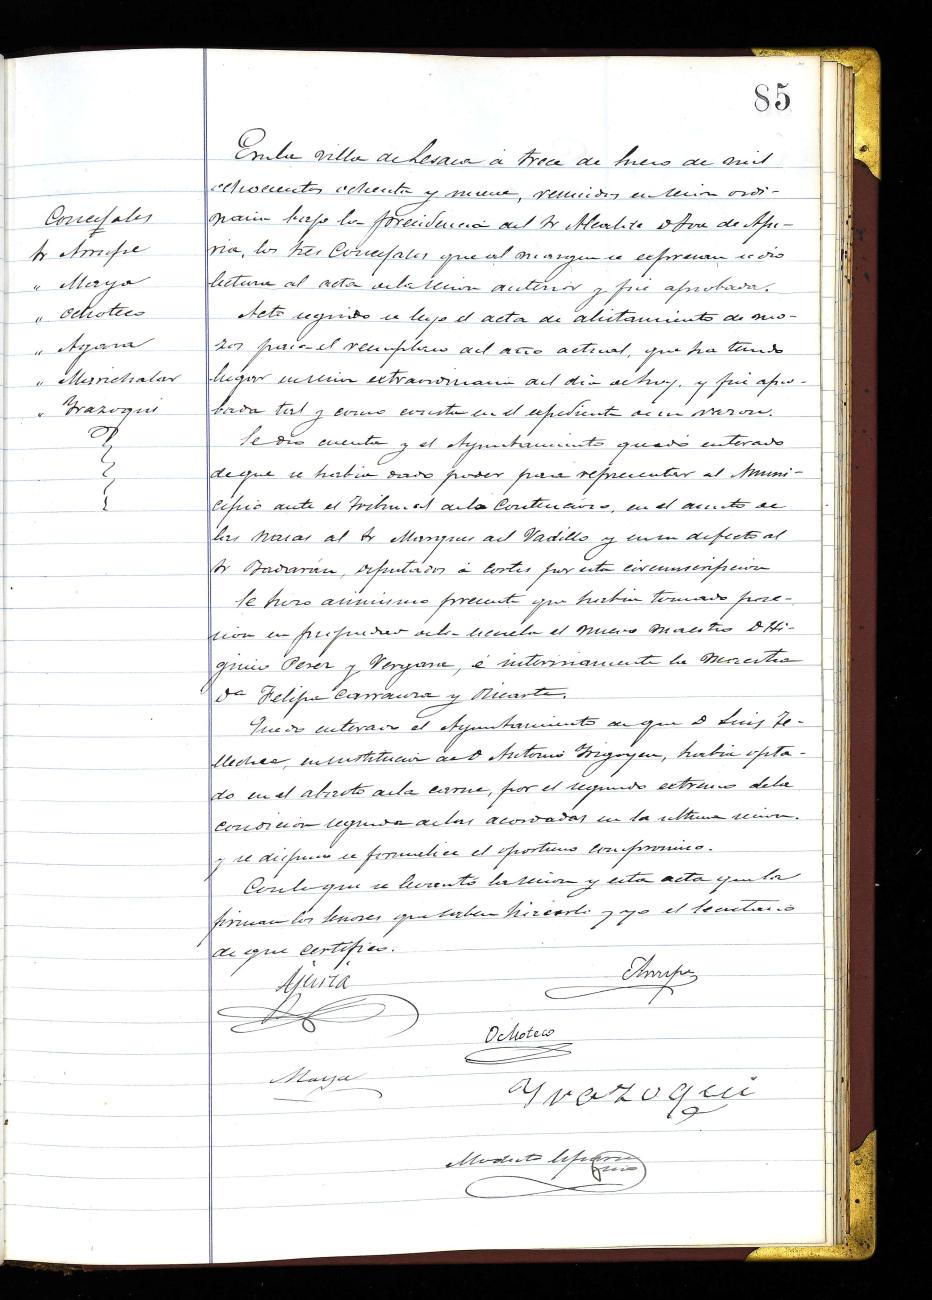 85
En la villa de Lesaca á trece de Enero de mil
ochocientos ochenta y nueve, reunidos en sesion ordi-
naria bajo la presidencia del Sr Alcalde D José de Apu-
ria, los tres Concejales que al margen se espresan se dió
lectura al acta de la sesion anterior y fué aprobada.
Concejales
Sr Arrupe
" Maya
" Ochoteco
" Agara
" Marichalar
" Yrazoqui
Acto seguido se leyó el acta de alistamiento de mo-
zos para el reemplazo del año actual, que ha tenido
lugar en sesion extraordinaria del dia de hoy, y fué apro-
bada tal y como consta en el espediente de su razon.
Se dió cuenta y el Ayuntamiento quedó enterado
de que se habia dado poder para representar al Muni-
cipio ante el Tribunal de lo Contencioso, en el asunto de
las al Sr Marques del Vadillo y en su defecto al
Sr Badarán, diputados á Cortes por esta circunscripcion
Se hizo asimismo presente que habia tomado pose-
sion en propiedad de la escuela el nuevo maestro D Hi-
ginio Perez y Vergara, é interinamente la Maestra
Dª Felipa Carranza y Ricarte.
Quedó enterado el Ayuntamiento de que D Luis Te-
llechea, en sustitucion de D Antonio Yrigoyen, habia opta-
do en el abasto de la carne, por el segundo extremo de la
condicion segunda de las acordadas en la ultima sesion.
y se dispuso se formalice el oportuno compromiso.
Con lo que se levantó la sesion y esta acta que la
firman los Señores que saben hacerlo y yo el Secretario
de que certifico.
Apuria
Arrupe
Ochoteco
Maya
Yrazoqui
Modesto